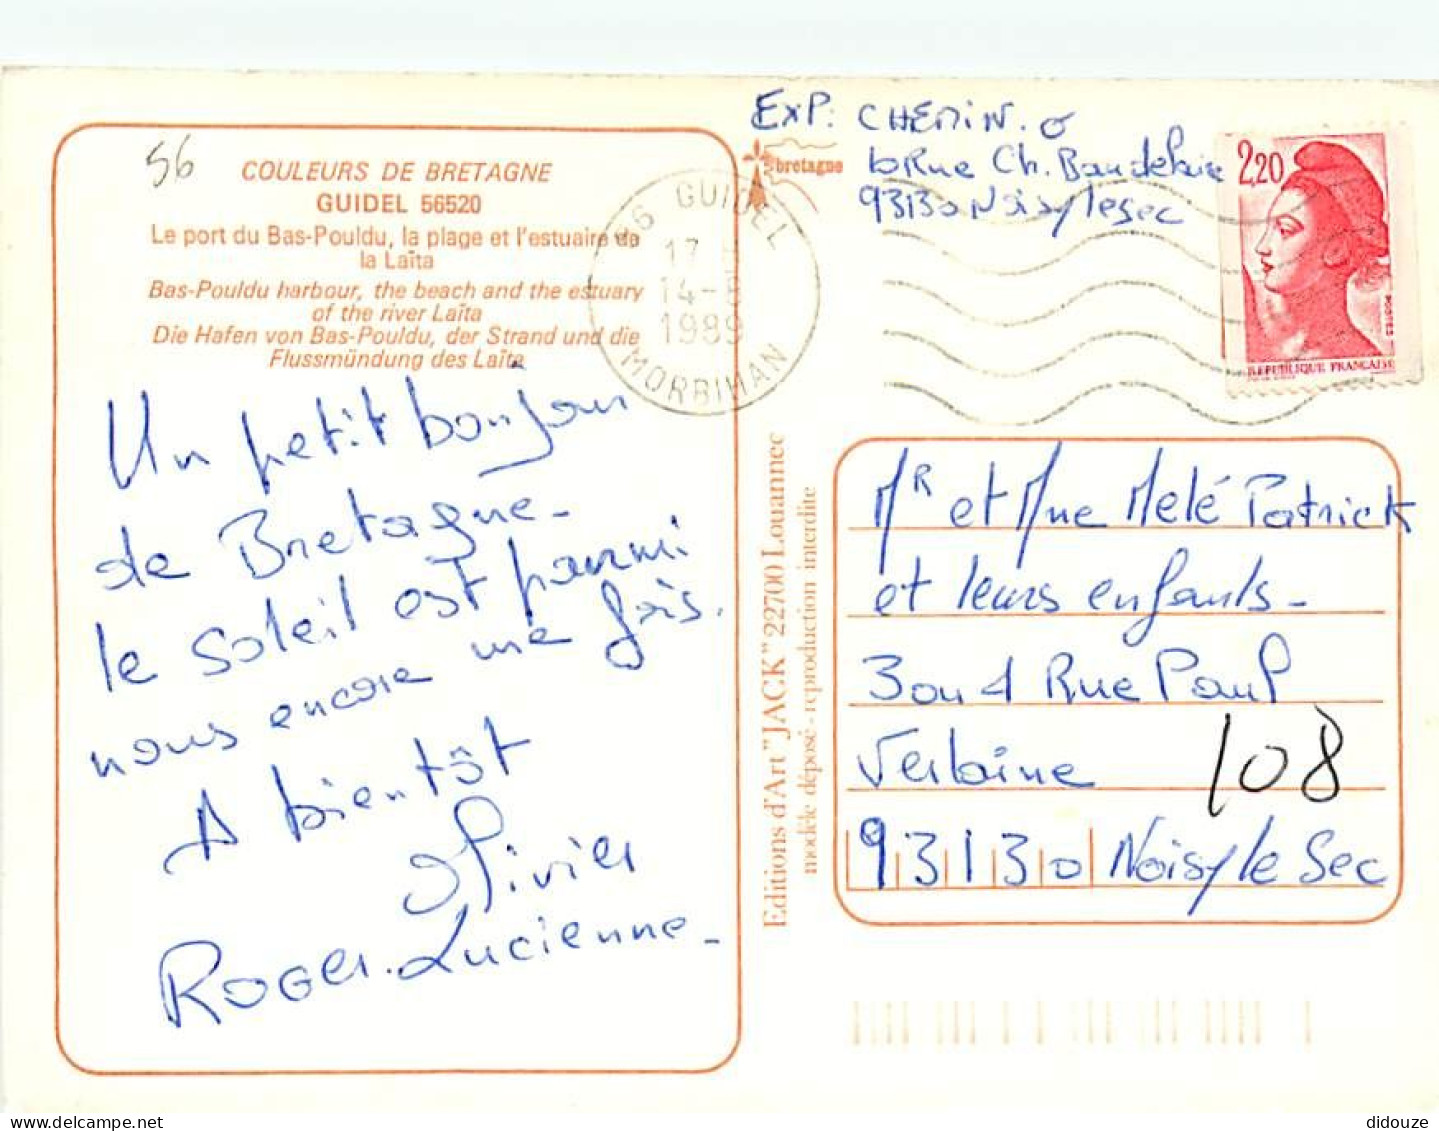 56
COULEURS DE BRETAGNE
GUIDEL 56520
Le port du Bas-Pouldu, la plage et l'estuaire de
la Laïta
Bas-Pouldu harbour, the beach and the estuary
of the river Laïta
Die Hafen von Bas-Pouldu, der Strand und die
Flussmündung des Laïta
Un petit bonjour
de Bretagne-
le soleil est parmi
nous encore une fois.
A bientôt
Olivier
Roger-Lucienne-
56 GUIDEL
17 H
14-8
1989
MORBIHAN
bretagne
EXP: CHEMIN. O
Rue Ch. Baudelaire
93130 Noisy le sec
2,20
POSTES
REPUBLIQUE FRANÇAISE
Editions d'Art "JACK" 22700 Louannec
modèle déposé - reproduction interdite
Mr et Mme Melé Patrick
et leurs enfants-
3 ou 4 Rue Paul
Verlaine
108
93130 Noisy le Sec
delcampe.net
didouze